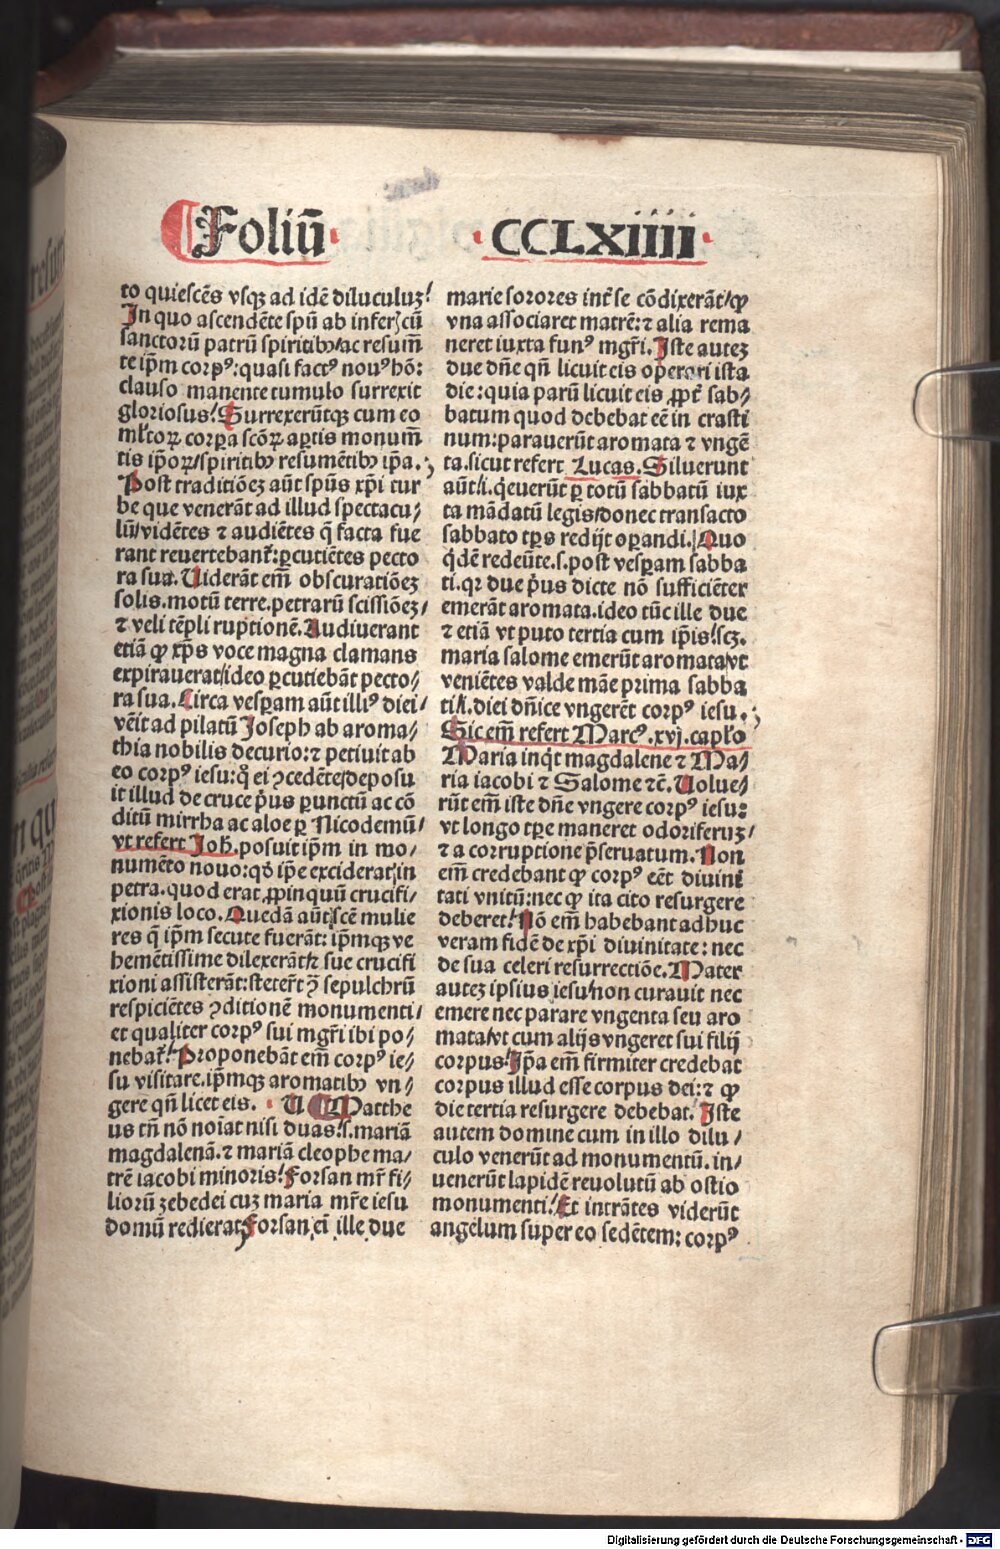 Foliū · CCLXiiii ·
to quiescēs vsqꝫ ad idē diluculuꝫ!
In quo ascendēte spū ab inferꝭ cū
sanctorū patrū spiritibꝰ/ac resum̄
te ip̄m corpꝰ:quasi factꝰ nouꝰ hō:
clauso manente tumulo surrexit
gloriosus! Surrexerūtqꝫ cum eo
ml'toꝝ corꝑa scōꝝ aꝑtis monum̄
tis ip̄oꝝ/spiritibꝰ resumētibꝰ ip̄a.
Post traditiōeꝫ aūt spūs xp̄i tur
be que venerāt ad illud spectacu/
lū/vidētes ⁊ audiētes q̄ facta fue
rant reuertebant᷑:ꝑcutiētes pecto
ra sua. Uiderāt em̄ obscuratiōeꝫ
solis.motū terre.petrarū scissiōeꝫ/
⁊ veli tēpli ruptionē. Audiuerant
etiā ꝙ xp̄s voce magna clamans
expirauerat/ideo ꝑcutiebāt pecto/
ra sua. Circa vesꝑam aūt illiꝰ diei/
vēit ad pilatū Joseph ab aroma/
thia nobilis decurio:⁊ petiuit ab
eo corpꝰ iesu:q̊ ei ꝯcedēte/deposu
it illud de cruce p̄us ꝑunctū ac cō
ditū mirrha ac aloe ꝑ Nicodemū/
vt refert Joh̄.posuit ip̄m in mo/
numēto nouo:qd̛ ip̄e exciderat in
petra.quod erat ꝓpinquū crucifi/
xionis loco. Quedā aūt scē mulie
res q̄ ip̄m secute fuerāt: ip̄mqꝫ ve
hemētissime dilexerāt/⁊ sue crucifi
xioni assisterāt:steter̄t ꝯ̄ sepulchrū
respiciētes ꝯditionē monumenti/
et qualiter corpꝰ sui mgr̄i ibi po/
nebat᷑! Proponebāt em̄ corpꝰ ie/
su visitare.ip̄mqꝫ aromatibꝰ vn/
gere qn̄ licet eis. · U Matthe
us tn̄ nō noīat nisi duas!.s.mariā
magdalenā.⁊ mariā cleophe ma/
trē iacobi minoris! Forsan mr̄ fi/
liorū zebedei cuꝫ maria mr̄e iesu
domū redierat, Forsan ei ille due
marie sorores int᷑ se cōdixerāt/ꝙ
vna associaret matrē:⁊ alia rema
neret iuxta funꝰ mgr̄i. Iste auteꝫ
due dn̄e qn̄ licuit eis operari ista
die:quia parū licuit eis ꝓpt᷑ sab/
batum quod debebat eē in crasti
num:parauerūt aromata ⁊ vngē
ta.sicut refert Lucas. Siluerunt
aūt/.i.q̇euerūt ꝑ totū sabbatū iux
ta mādatū legis/donec transacto
sabbato tp̄s redijt oꝑandi. Quo
q̇dē redeūte.s.post vesꝑam sabba
ti.qꝛ due p̄us dicte nō sufficiēter
emerāt aromata.ideo tūc ille due
⁊ etiā vt puto tertia cum ip̄is!scꝫ.
maria salome emerūt aromata/vt
veniētes valde māe prima sabba
ti/.i.diei dn̄ice vngerēt corpꝰ iesu.
Sic em̄ refert Marcꝰ.xvj.capl'o
Maria inq̇t magdalene ⁊ Ma/
ria iacobi ⁊ Salome ⁊c̄. Uolue/
rūt em̄ iste dn̄e vngere corpꝰ iesu:
vt longo tꝑe maneret odoriferuꝫ/
⁊ a corruptione p̄seruatum. Non
em̄ credebant ꝙ corpꝰ eēt diuini
tati vnitū:nec ꝙ ita cito resurgere
deberet! Nō em̄ habebant adhuc
veram fidē de xp̄i diuinitate: nec
de sua celeri resurrectiōe. Mater
auteꝫ ipsius iesu/non curauit nec
emere nec parare vngenta seu aro
mata/vt cum alijs vngeret sui filij
corpus! Ip̄a em̄ firmiter credebat
corpus illud esse corpus dei:⁊ ꝙ
die tertia resurgere debebat. Iste
autem domine cum in illo dilu/
culo venerūt ad monumentū.in/
uenerūt lapidē reuolutū ab ostio
monumenti! Et intrātes viderūt
angelum super eo sedētem: corpꝰ
Digitalisierung gefördert durch die Deutsche Forschungsgemeinschaft - DFG